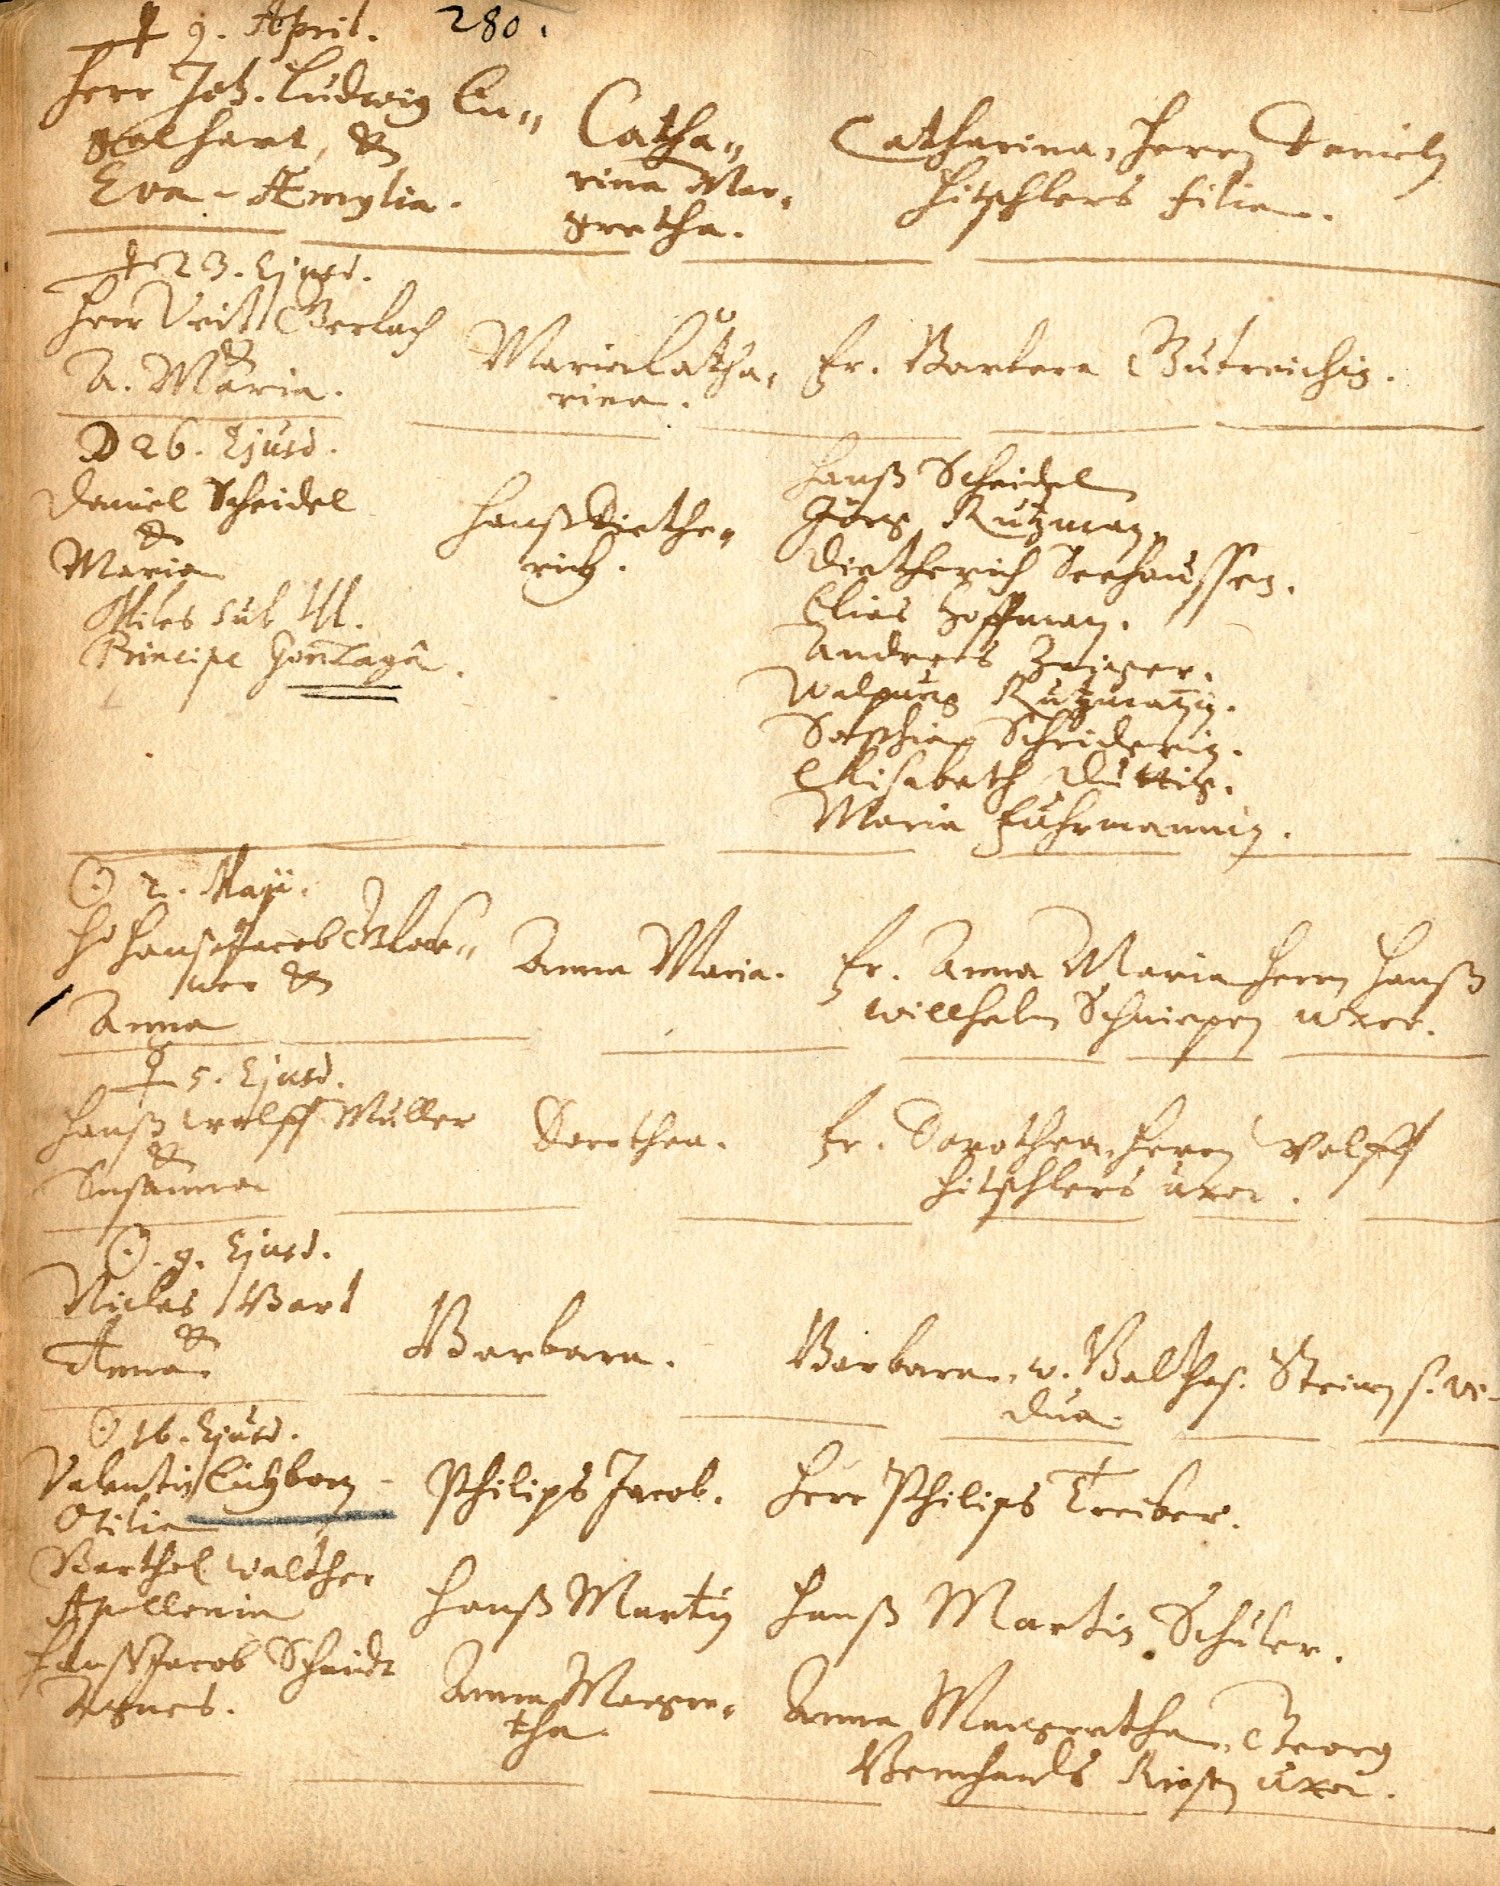 ♀ 9. April. 280.
Herr Joh. Ludwig En„
gelhart, &
Eva-Æmylia.
Catha„
rina Mar„
gretha.
Catharina, Herrn Daniels
Hitschlers filia.
♀ 23. Ejusd.
Herr Veit Gerlach
&
A. Maria.
Maria Catha„
rina.
Fr. Barbara Gutreichin.
☽ 26. Ejusd.
Daniel Scheidel
&
Maria
Miles sub Ill.
Principe Gonzagâ.
Hanß Diethe„
rich.
Hanß Scheidel
Jörg Kutzman,
Dietherich Seehaussen.
Elias Hoffman.
Andreas
Walpurg Kutzmanin.
Sophia Schneiderin.
Elisabeth
Maria Fuhrmannin.
☉ 2. Maji.
H. Hanß Jacob Block„
ner &
Anna
Anna Maria.
Fr. Anna Maria Herrn Hanß
Willhelm uxor.
☿ 5. Ejusd.
Hanß Wolff Müller
&
Susanna
Dorothea.
Fr. Dorothea, Herrn Wolff
Hitschlers uxor.
☉. 9. Ejusd.
Niclas Bart
&
Anna
Barbara.
Barbara, w. Balthas. Steinen s. vi-
dua.
☉ 16. Ejusd.
Valentin
Otilia
Philips Jacob.
Herr Philips Treiber.
Barthel Walther
Apollonia
Hanß Martin
Hanß Martin Schüler.
Hanß Jacob Schmidt
Agnes.
Anna Margre„
tha
Anna Margretha, Georg
Bernhards uxor.